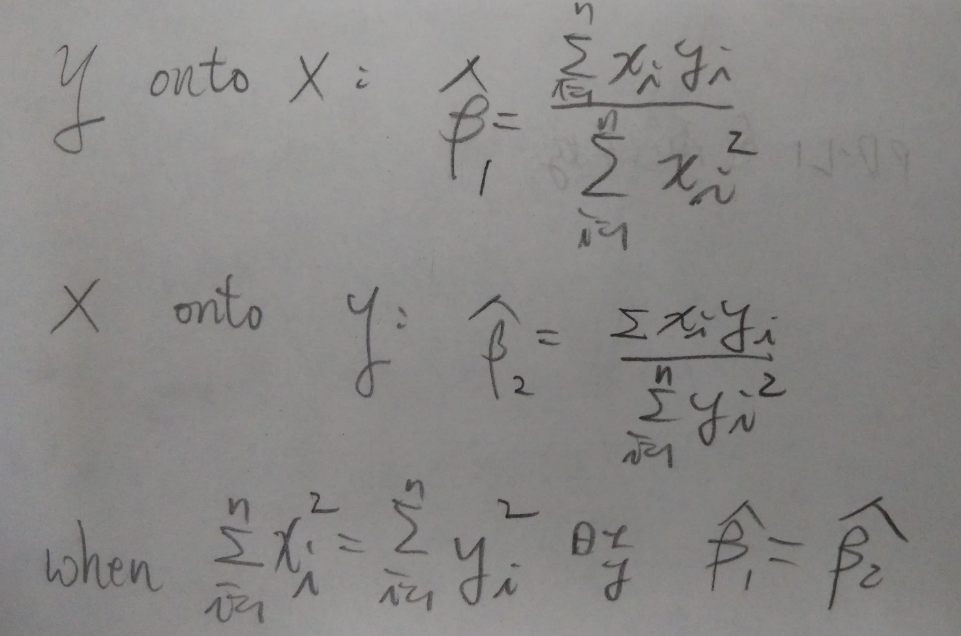 Y onto X: β̂₁ = ∑ᵢ₌₁ⁿ xᵢ yᵢ / ∑ᵢ₌₁ⁿ xᵢ²
X onto y: β̂₂ = Σ xᵢ yᵢ / ∑ᵢ₌₁ⁿ yᵢ²
when ∑ᵢ₌₁ⁿ xᵢ² = ∑ᵢ₌₁ⁿ yᵢ² β̂₁ = β̂₂